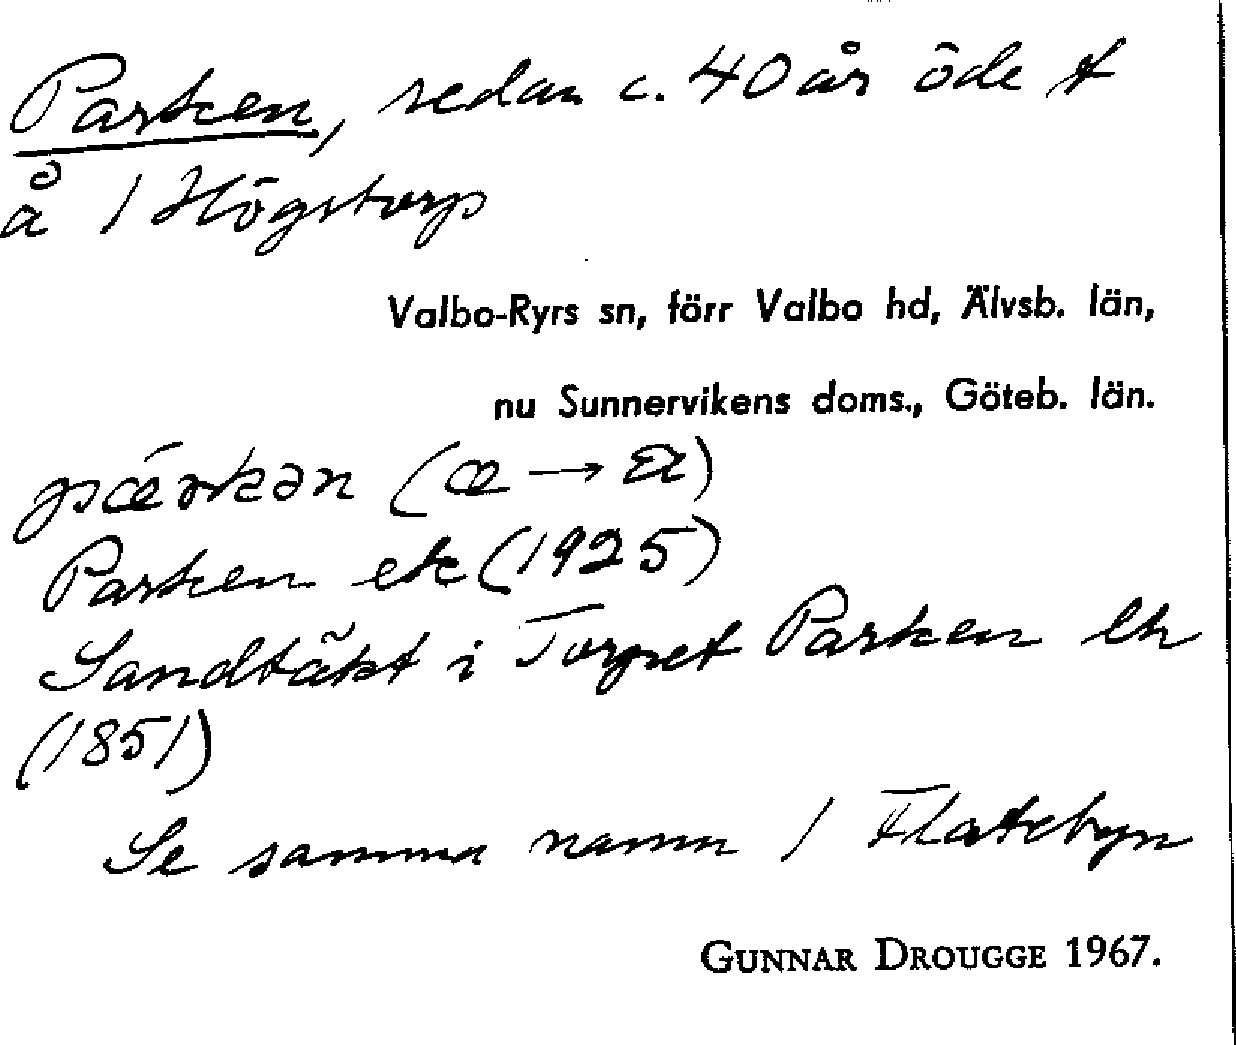 Parken, sedan c. 40 år öde t
å / Högstorp
Valbo-Ryrs sn, förr Valbo hd, Älvsb. län,
nu Sunnervikens doms., Göteb. län.
pǽrkən (æ → a)
Parken ek (1925)
Sandtäkt i Torpet Parken lh
(1851)
Se samma namn / Flatebyn
GUNNAR DROUGGE 1967.